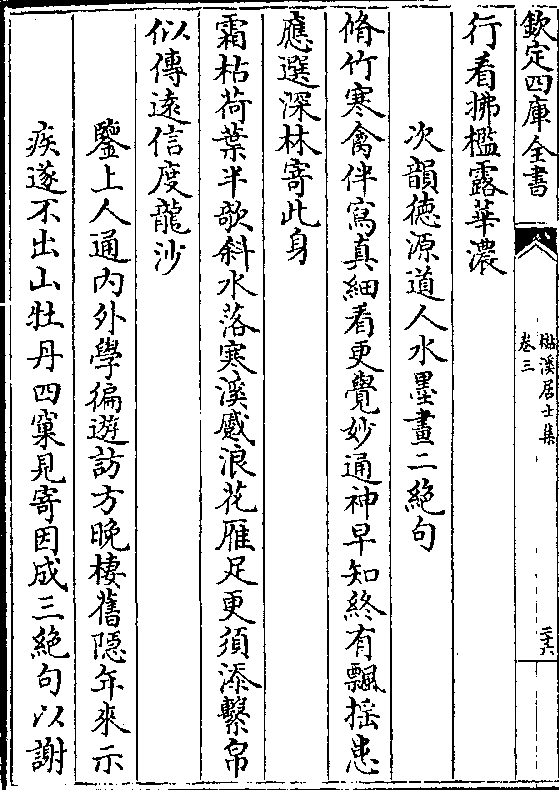 欽定四庫全書
檆溪居士集
卷三
三六
行看拂檻露華濃
次韻德源道人水墨畫二絕句
脩竹寒禽伴寫真細看更覺妙通神早知終有飄摇患
應選深林寄此身
霜枯荷葉半欹斜水落寒溪蹙浪花雁足更須添繫帛
似傳遠信度龍沙
鑒上人通内外學徧遊訪方晚棲舊隠年來示
疾遂不出山牡丹四窠見寄因成三絕句以謝